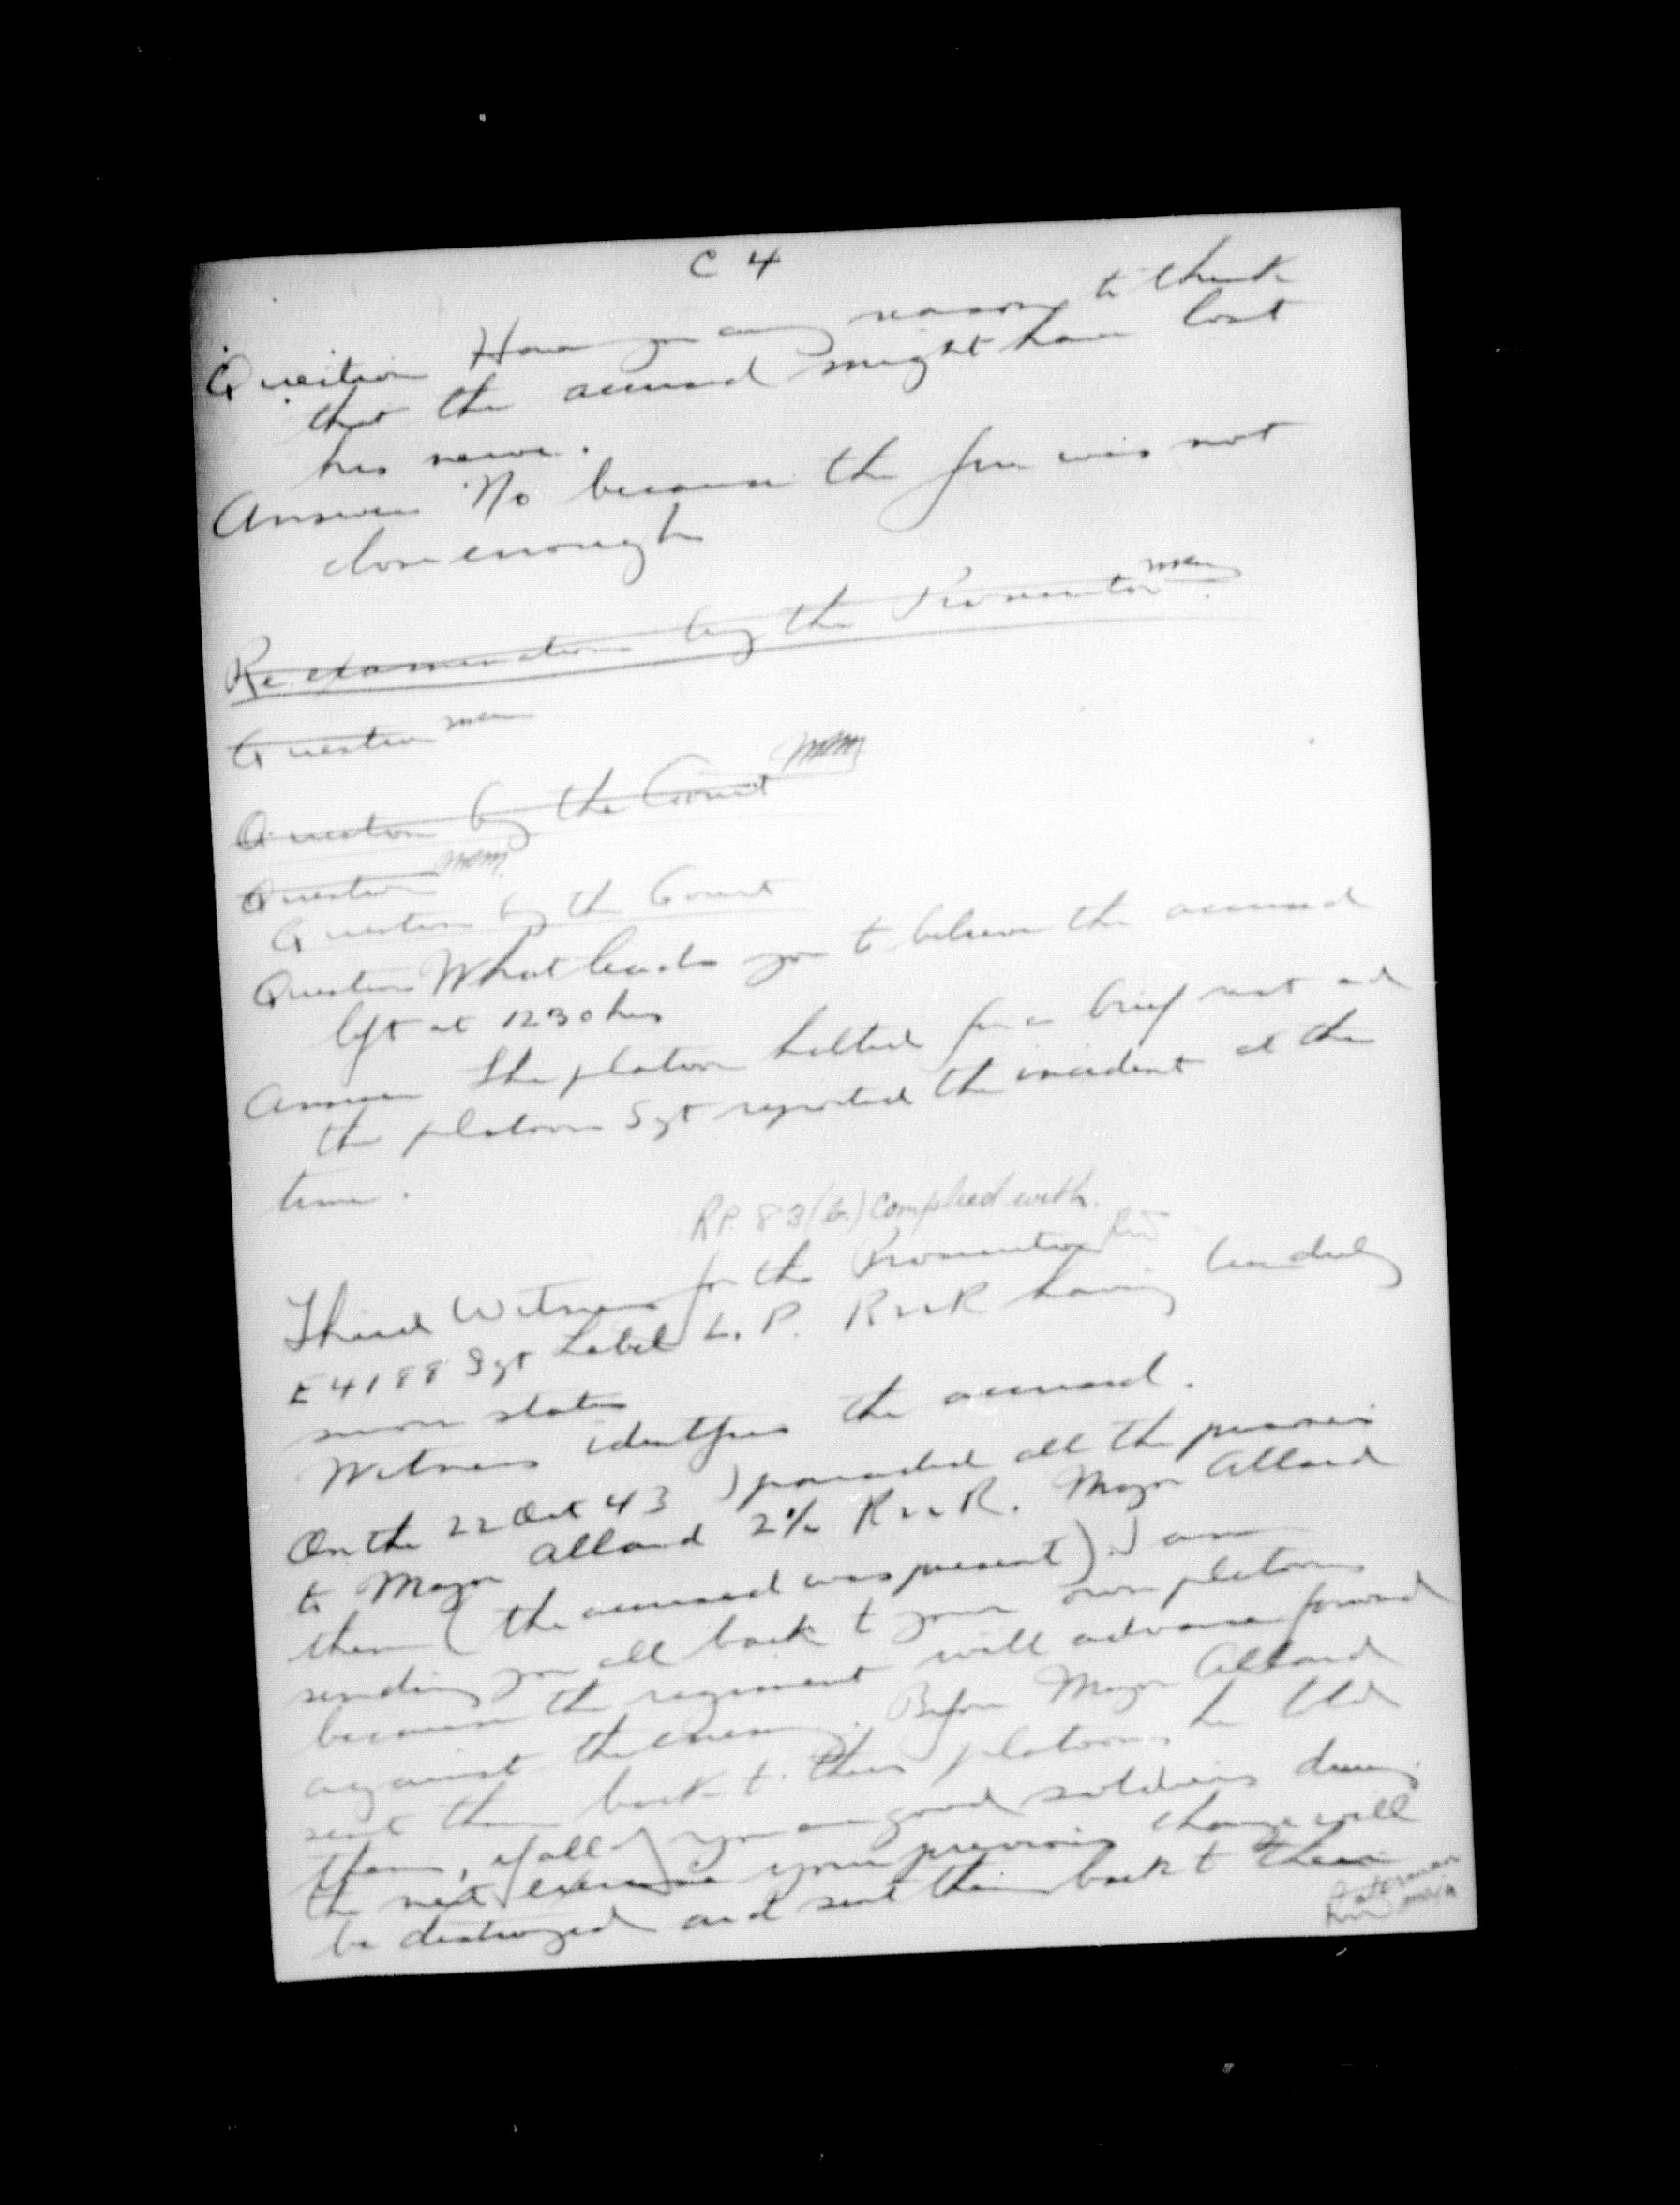 C 4
Question Have you any reason to think
that the accused might have lost
his nerve.
Answer No because the fire was not
close enough
Re examination by the Prosecutor
Question
Question by the Court mem
Question mem
Question by the Court
Question What leads you to believe the accused
left at 1230 hrs
Answer The platoon halted for a brief rest and
the platoon Sgt reported the incident at the
time.
RP. 83 (b.) Complied with.
Third Witness for the Prosecution
E4188 Sgt Label L. P. R22R having been duly
sworn states
Witness identifies the accused.
On the 22 Oct 43 I paraded all the prisoners
to Major Allard 2 i/c R22R. Major Allard
them (the accused was present). I am
sending you all back to your own platoons
because the regiment will advance forward
against the enemy. Before Major Allard
sent them back to their platoons he told
them, if all you are good soldiers during
the next your previous charge will
be destroyed and sent them back to their